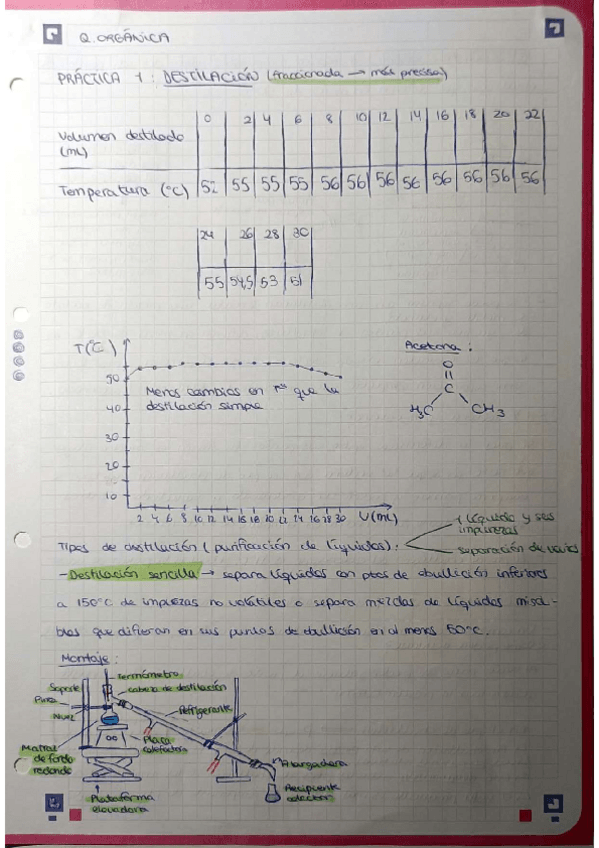 Q. ORGÁNICA
PRÁCTICA 1 : DESTILACIÓN (fraccionada → más precisa)
Volumen destilado (mL) 0 2 4 6 8 10 12 14 16 18 20 22
Temperatura (°C) 52 55 55 55 56 56 56 56 56 56 56 56
24 26 28 30
55 54,5 53 51
T(°C)
50
40
30
20
10
Menos cambios en Tª que la
destilación simple
2 4 6 8 10 12 14 16 18 20 22 24 26 28 30 V(mL)
Acetona :
O
C
H₃C CH₃
Tipos de destilación (purificación de líquidos):
1 líquido y sus impurezas
separación de varios
- Destilación sencilla → separa líquidos con ptos de ebullición inferiores
a 150°C de impurezas no volátiles o separa mezclas de líquidos misci-
bles que difieran en sus puntos de ebullición en al menos 50°C.
Montaje :
Termómetro
Soporte
cabeza de destilación
Pinza
Refrigerante
Nuez
Placa calefactora
Matraz de fondo redondo
Alargadera
Recipiente colector
Plataforma elevadora